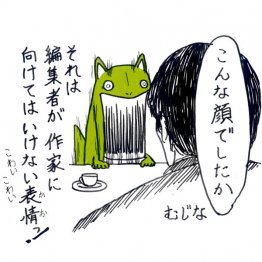 こんな顔でしたか
むじな
それは
編集者が 作家に
向けてはいけない表情っ!
かお
こわい こわい